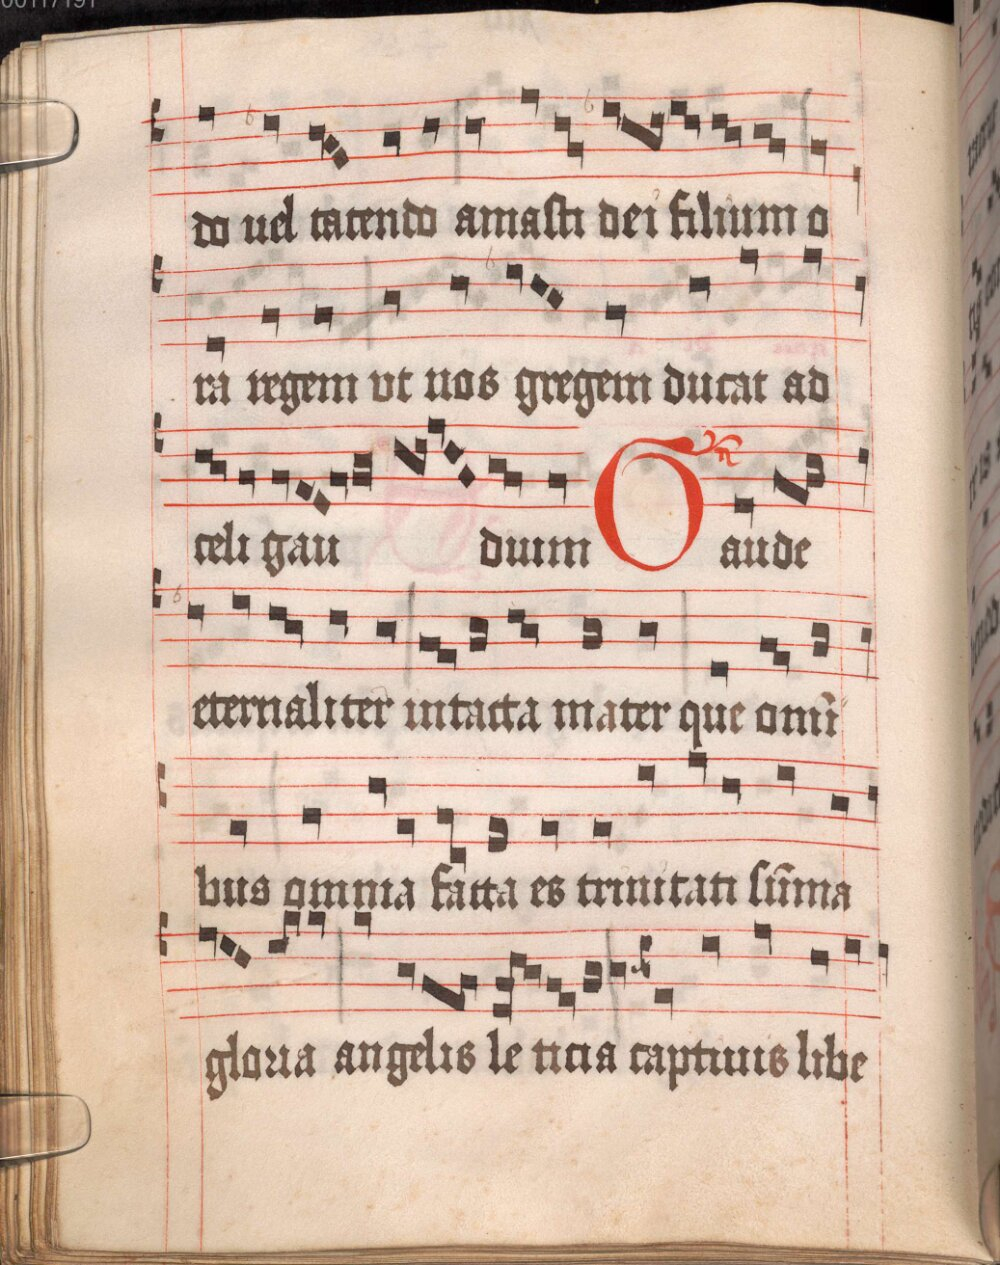 do uel tacendo amasti dei filium o
ra regem vt nos gregem ducat ad
celi gau dium G aude
eternaliter intacta mater que omī
bus omnia facta es trinitati sūma
gloria angelis le ticia captiuis libe